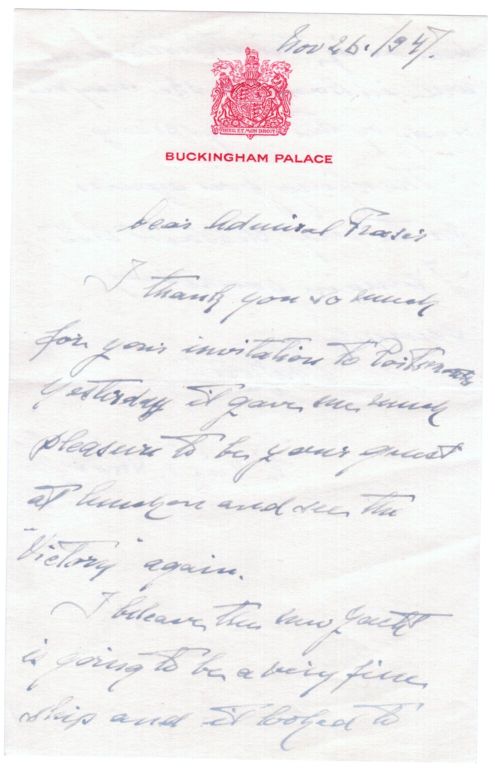 Nov 26. 1947.
DIEU ET MON DROIT
BUCKINGHAM PALACE
Dear Admiral Fraser
I thank you so much
for your invitation to Portsmouth
yesterday it gave me much
pleasure to be your guest
at lunchon and see the
"Victory" again.
I beleave the new
is going to be a very fine
ship and it looked to